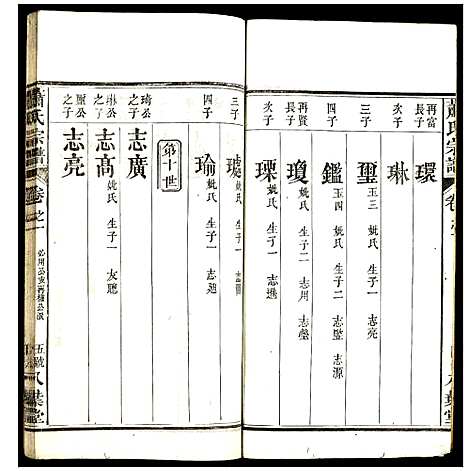 蕭氏宗譜
再富長子
環
次子
琳
三子
璽
玉三 妣氏 生子一 志亮
四子
鑑
玉四 妣氏 生子二 志監 志源
再 長子
瓊
妣氏 生子二 志川 志
次子
瑮
妣氏 生子一 志進
三子
妣氏 生子一
四子
瑜
妣氏 生子一 志
第十世
琦公之子
志廣
妣氏 生子一 友聰
琳公之子
志高
璽公之子
志亮
蕭氏宗譜
卷之一
五號
八葉堂